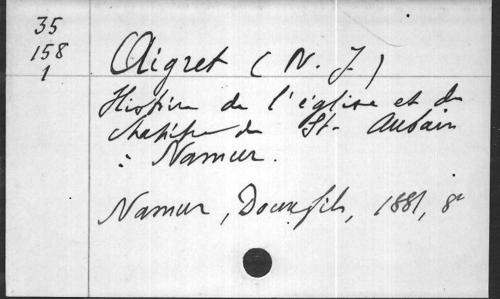 35
158
1
Aigret (N. J)
Histoire de l'église et du
chapitre de St. Aubain
à Namur.
Namur, Doux fils, 1881, 8°